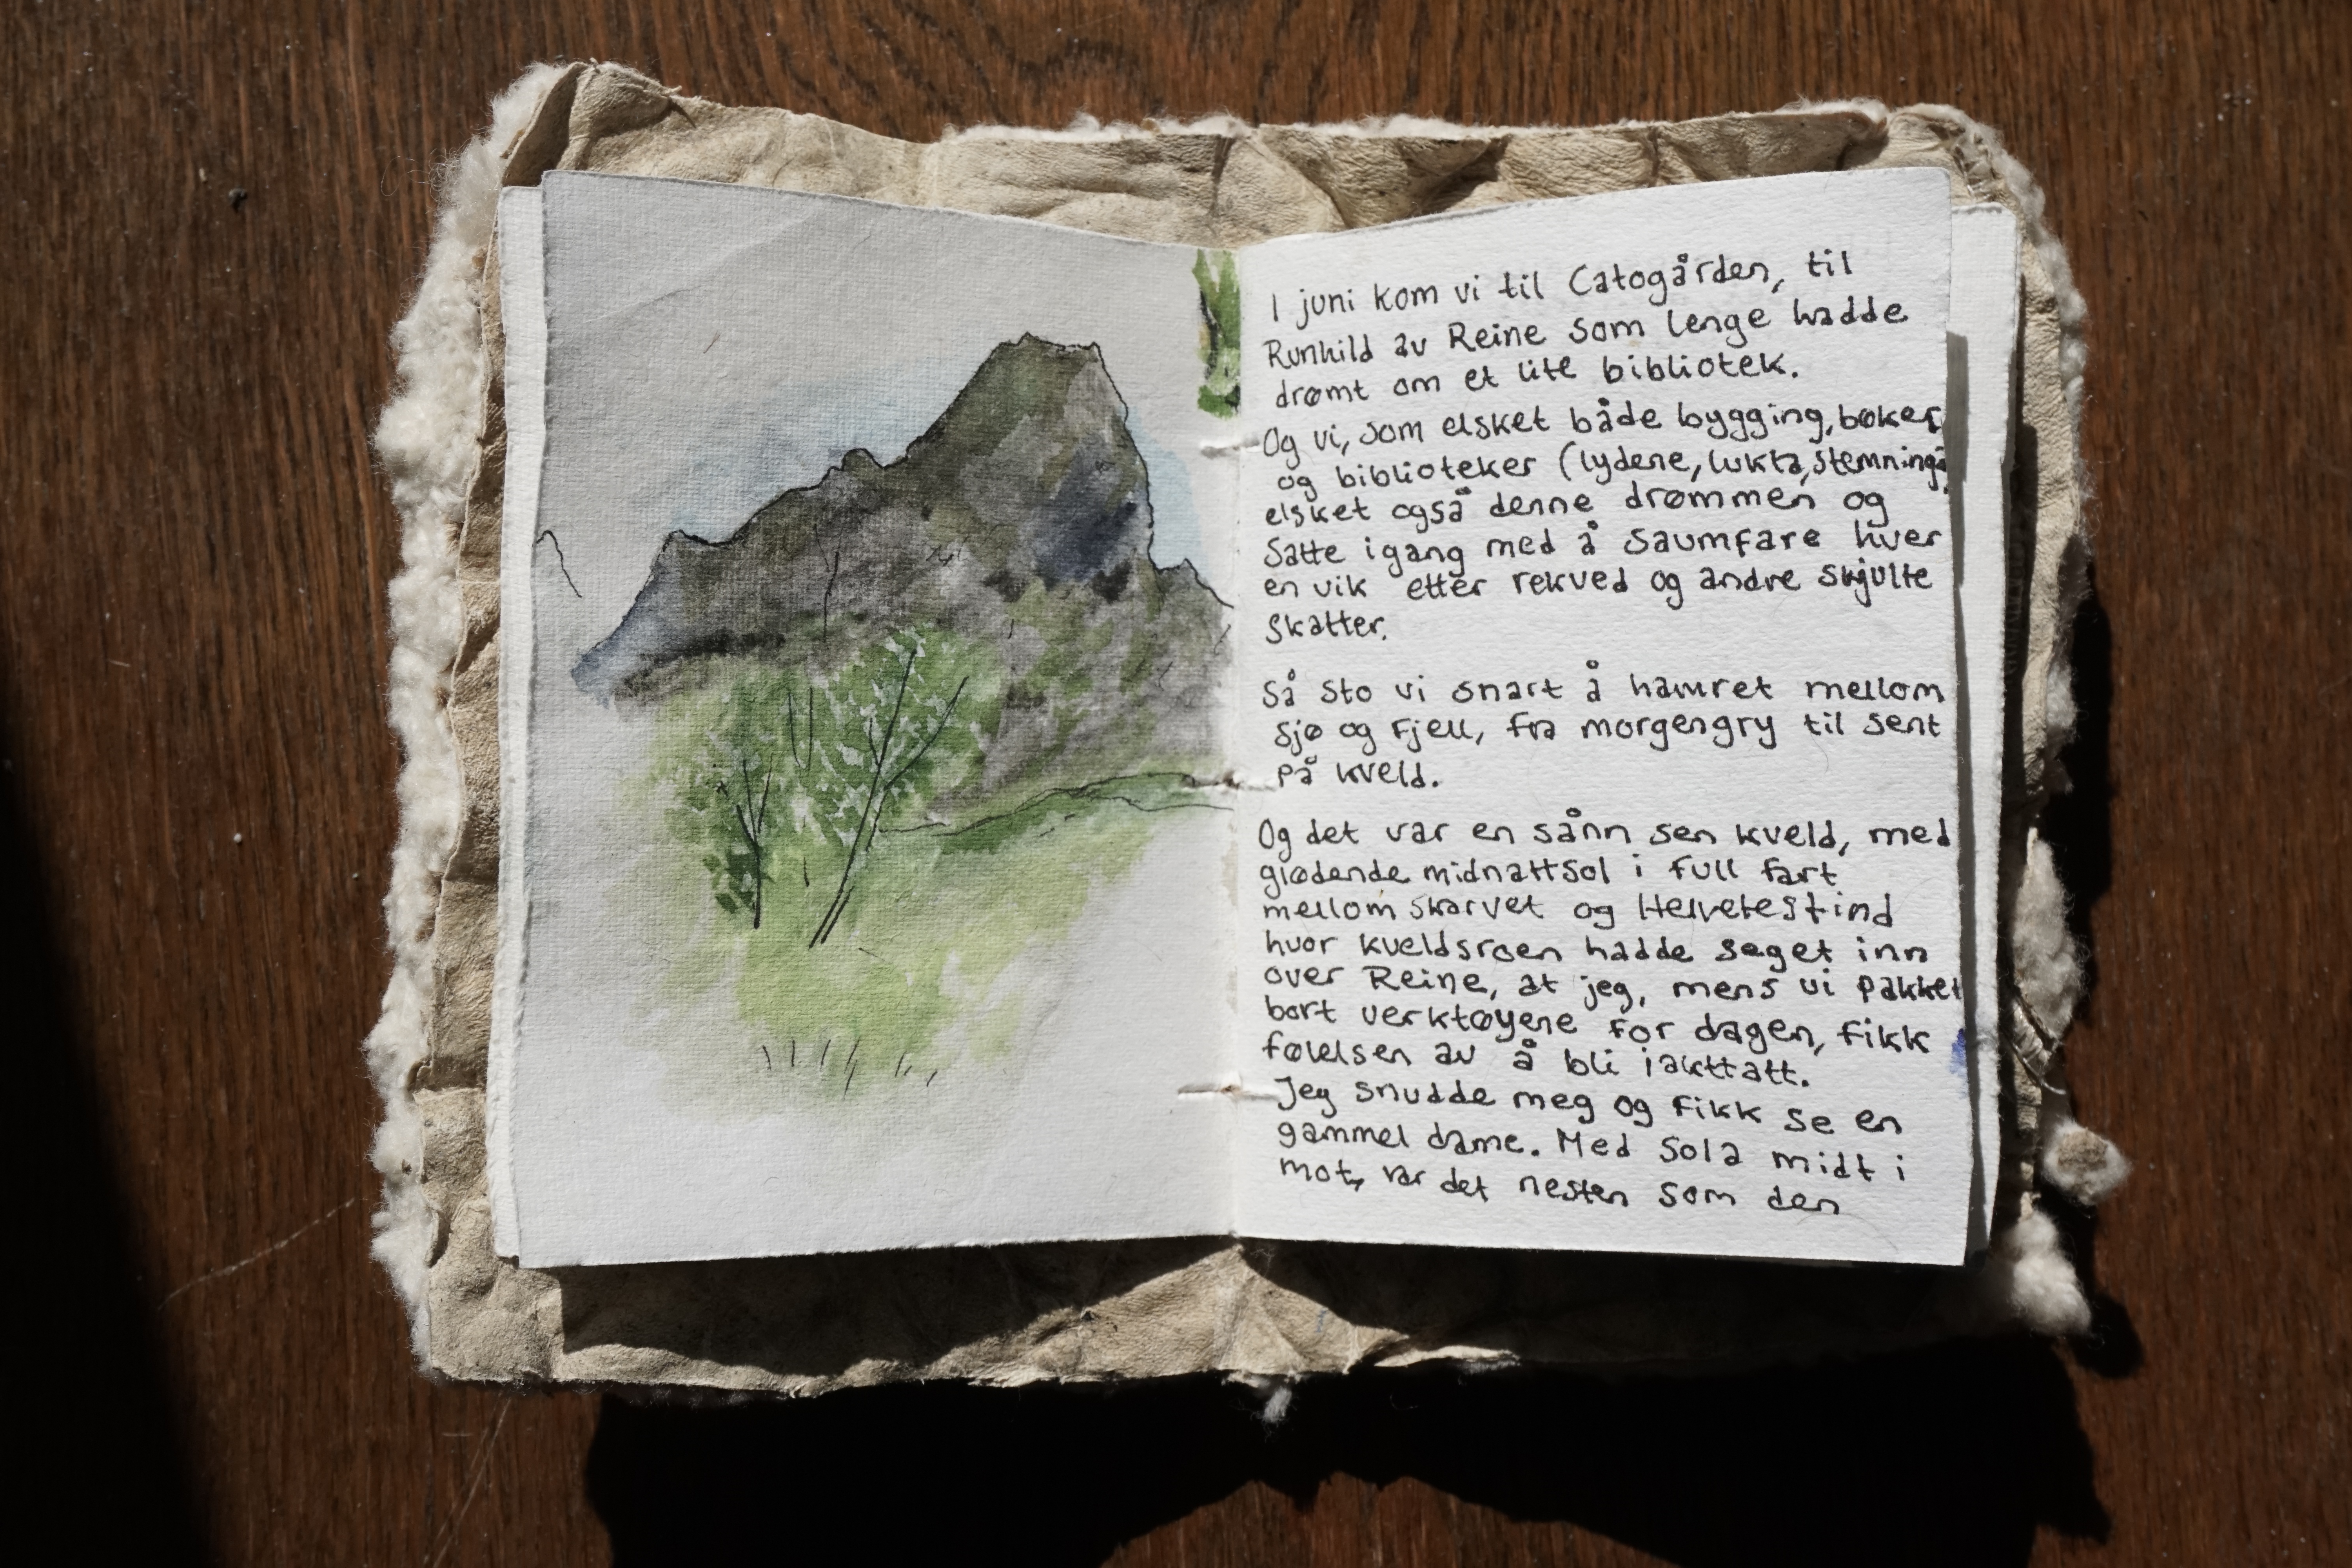 I juni kom vi til Catogården, til
Runhild av Reine som lenge hadde
drømt om et lite bibliotek.
Og vi, som elsket både bygging, bøker,
og biblioteker (lydene, lukta,
elsket også denne drømmen og
satte igang med å saumfare hver
en vik etter rekved og andre skjulte
skatter.
Så sto vi snart å hamret mellom
sjø og fjell, fra morgengry til sent
på kveld.
Og det var en sånn sen kveld, med
glødende midnattsol i full fart
mellom skarvet og Helvetestind
hvor kveldsroen hadde seget inn
over Reine, at jeg, mens vi pakket
bort verktøyene for dagen, fikk
følelsen av å bli iakttatt.
Jeg snudde meg og fikk se en
gammel dame. Med sola midt i
mot, var det nesten som den